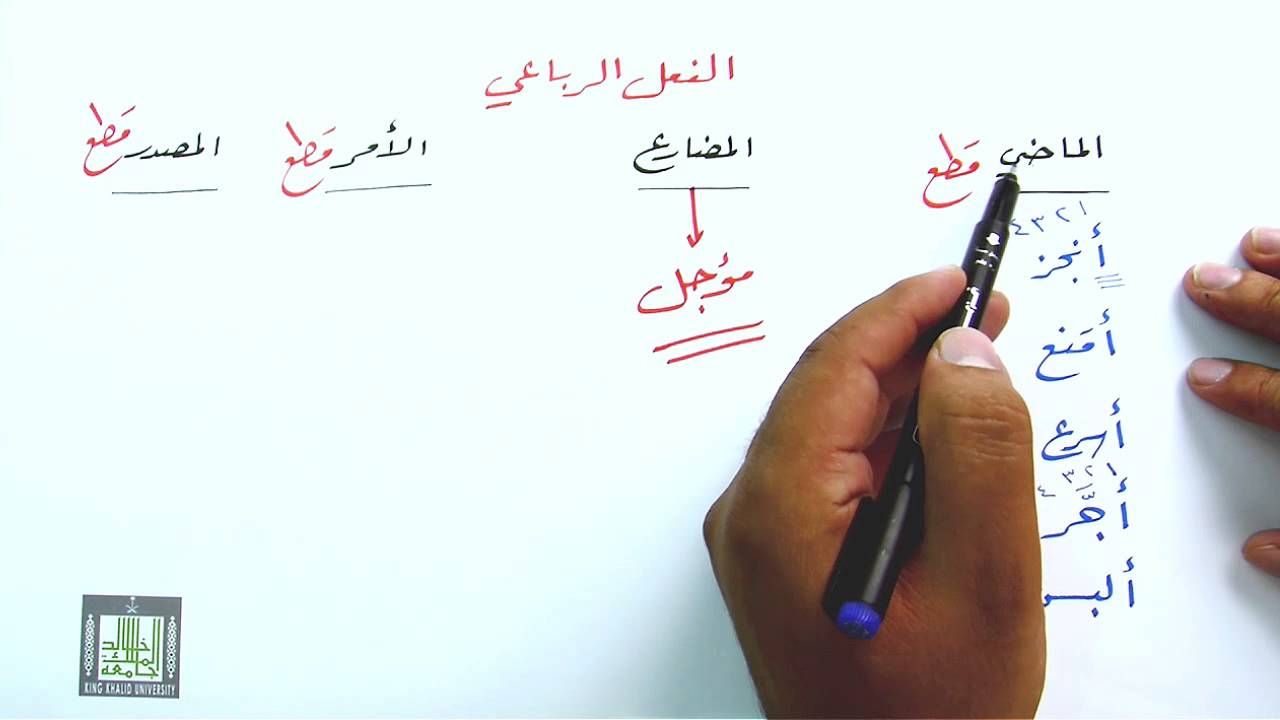 الفعل الرباعي
الماضي قطع
المضارع
الأمر قطع
المصدر قطع
١ ٢ ٣ ٤
أنجز
أقنع
أسرع
١ ٢ ٣ ٤
أجَّر
ألبس
مؤجل
جامعة الملك خالد
KING KHALID UNIVERSITY